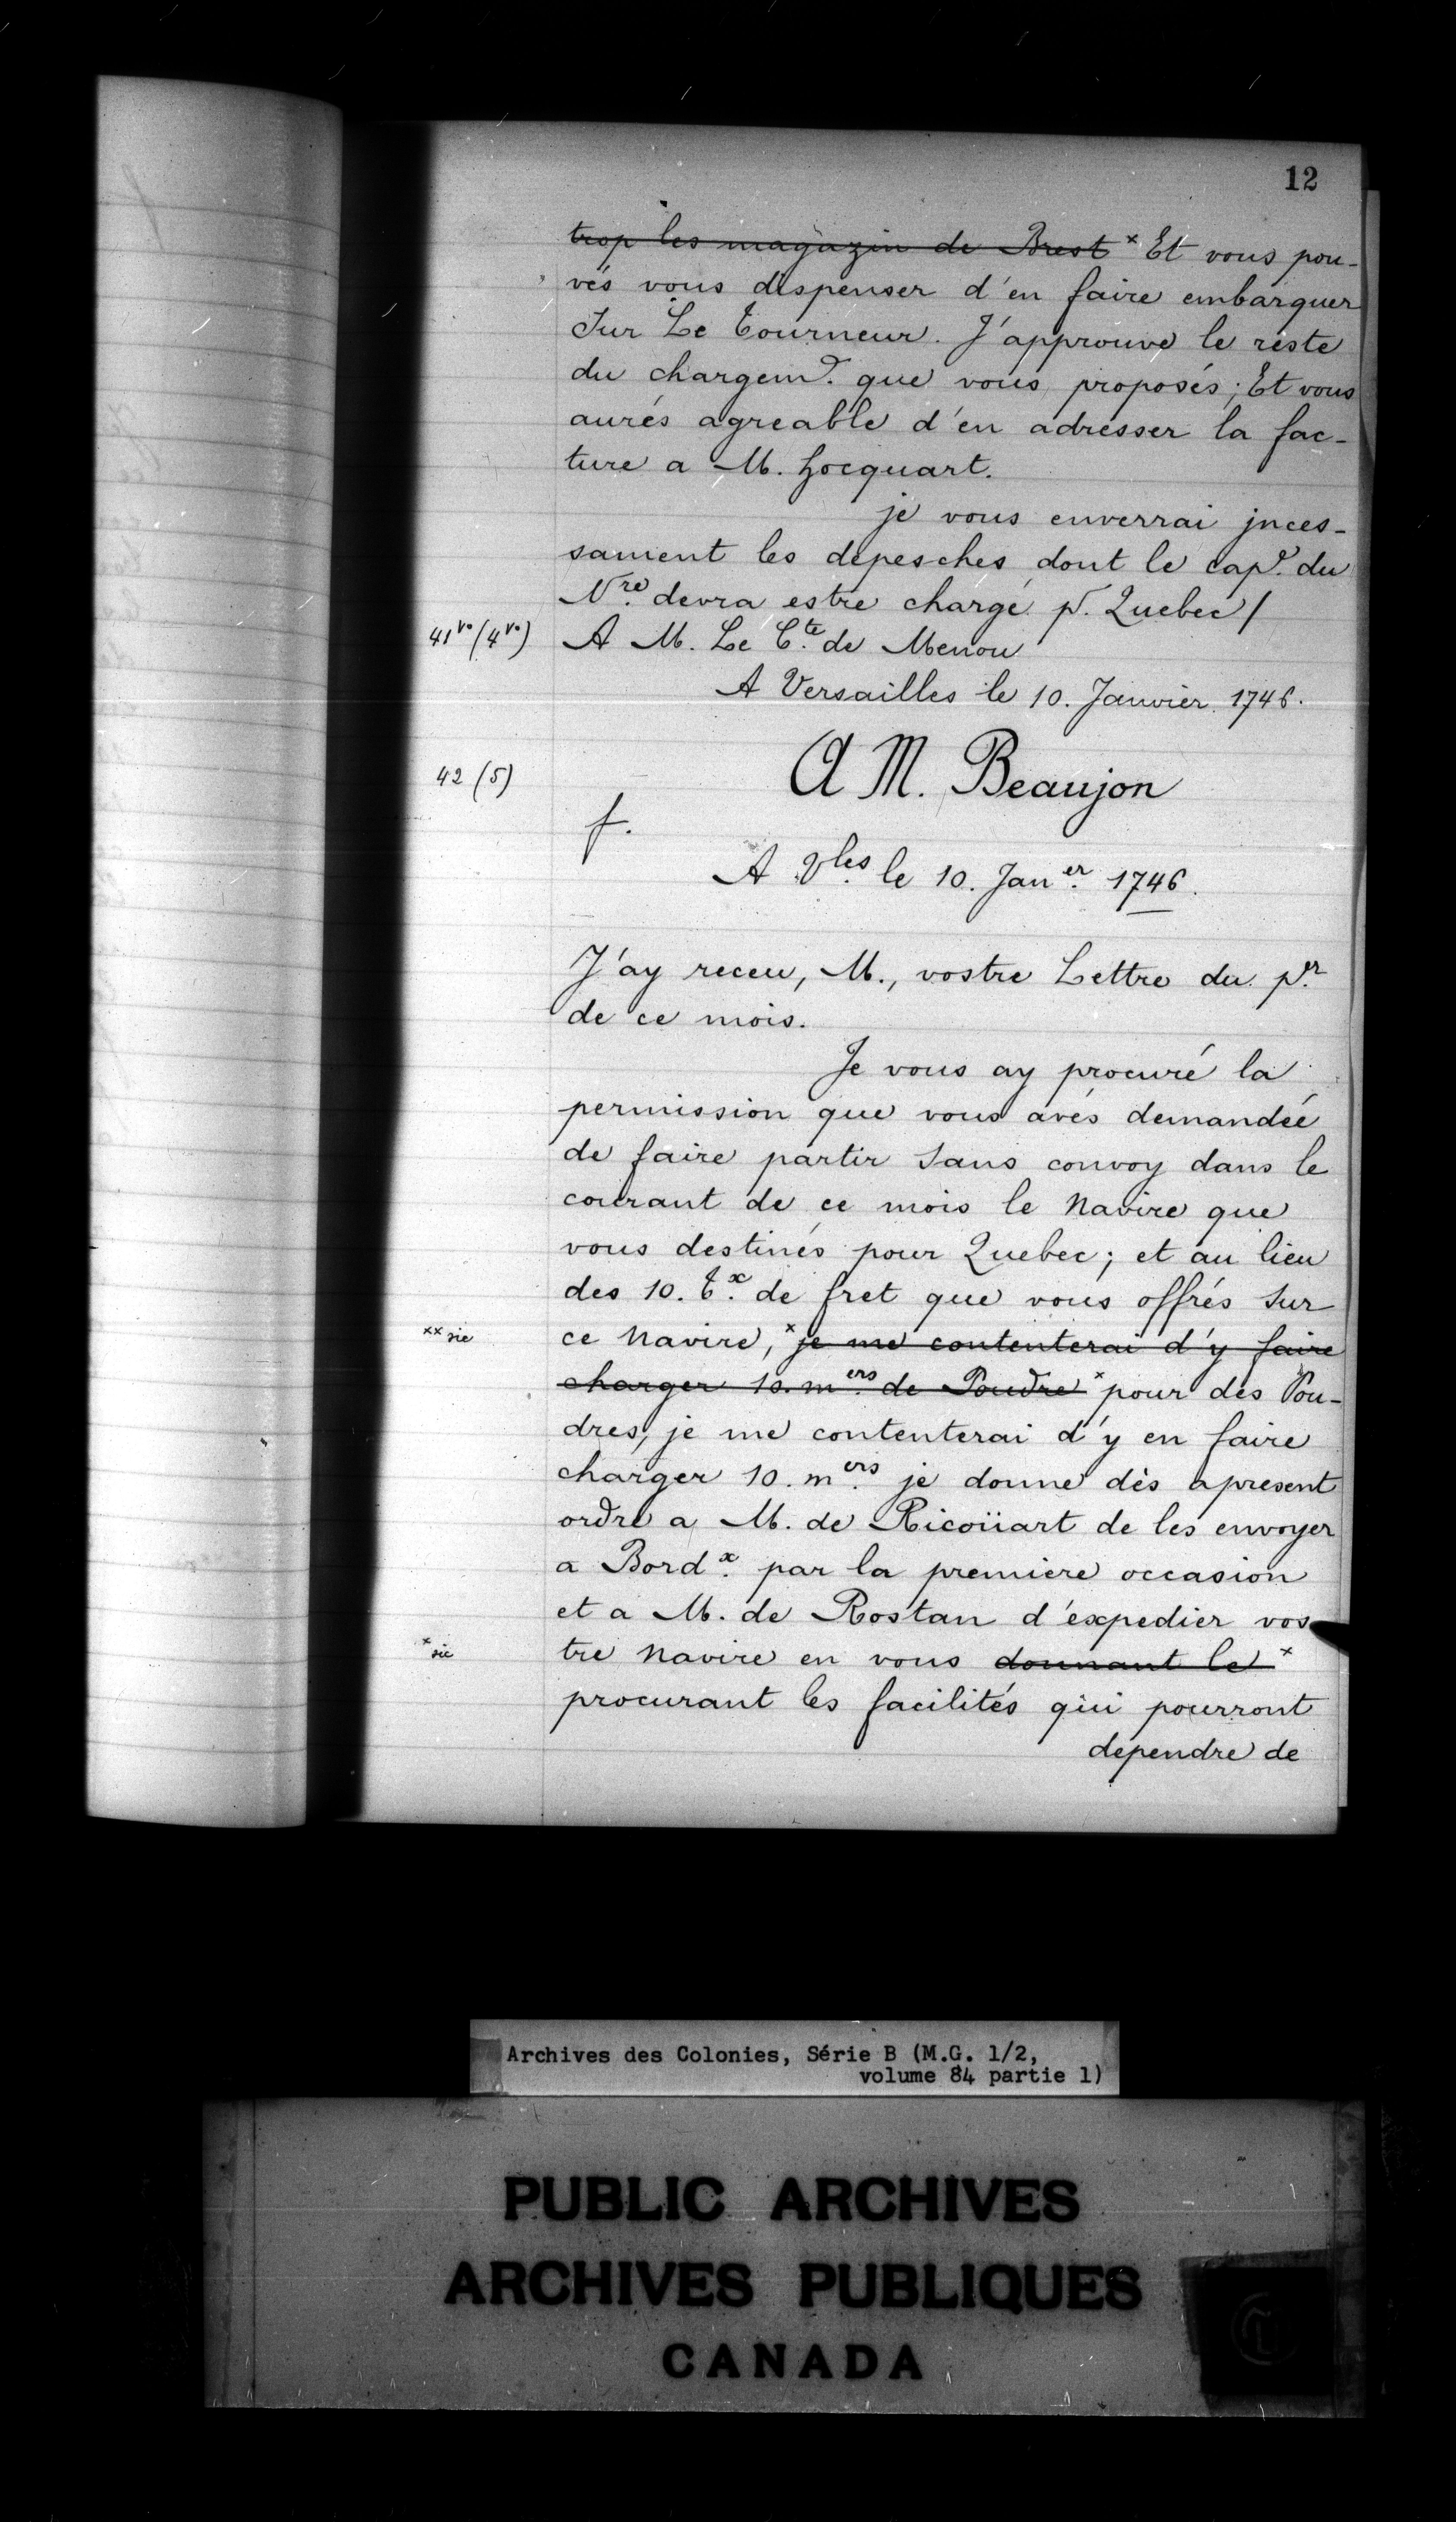 12
trop les magazin de Brest x Et vous pou-
vés vous dispenser d'en faire embarquer
Sur Le Tourneur. J'approuve le reste
du chargemt. que vous proposés; Et vous
aurés agreable d'en adresser la fac-
ture a M. hocquart.
je vous enverrai jnces-
sament les depesches dont le capne. du
Nre. devra estre chargé pr. Quebec/
41vo (4vo) A M. Le Cte. de Menou
A Versailles le 10. Janvier 1746.
42 (5) A M. Beaujon
f.
A Vles. le 10. Janer. 1746.
J'ay receu, M., vostre Lettre du pr.
de ce mois.
Je vous ay procuré la
permission que vous avés demandée
de faire partir sans convoy dans le
courant de ce mois le navire que
vous destinés pour Quebec; et au lieu
des 10. Tx. de fret que vous offrés sur
xx sic ce navire, x je me contenterai d'y faire
charger 10. mers. de Poudre x pour des Pou-
dres, je me contenterai d'y en faire
charger 10. mers. je donne dès apresent
ordre a M. de Ricoüart de les envoyer
a Bordx. par la premiere occasion
et a M. de Rostan d'expedier vos
x sic tre navire en vous donnant le x
procurant les facilités qui pourront
dependre de
Archives des Colonies, Série B (M.G. 1/2,
volume 84 partie 1)
PUBLIC ARCHIVES
ARCHIVES PUBLIQUES
CANADA